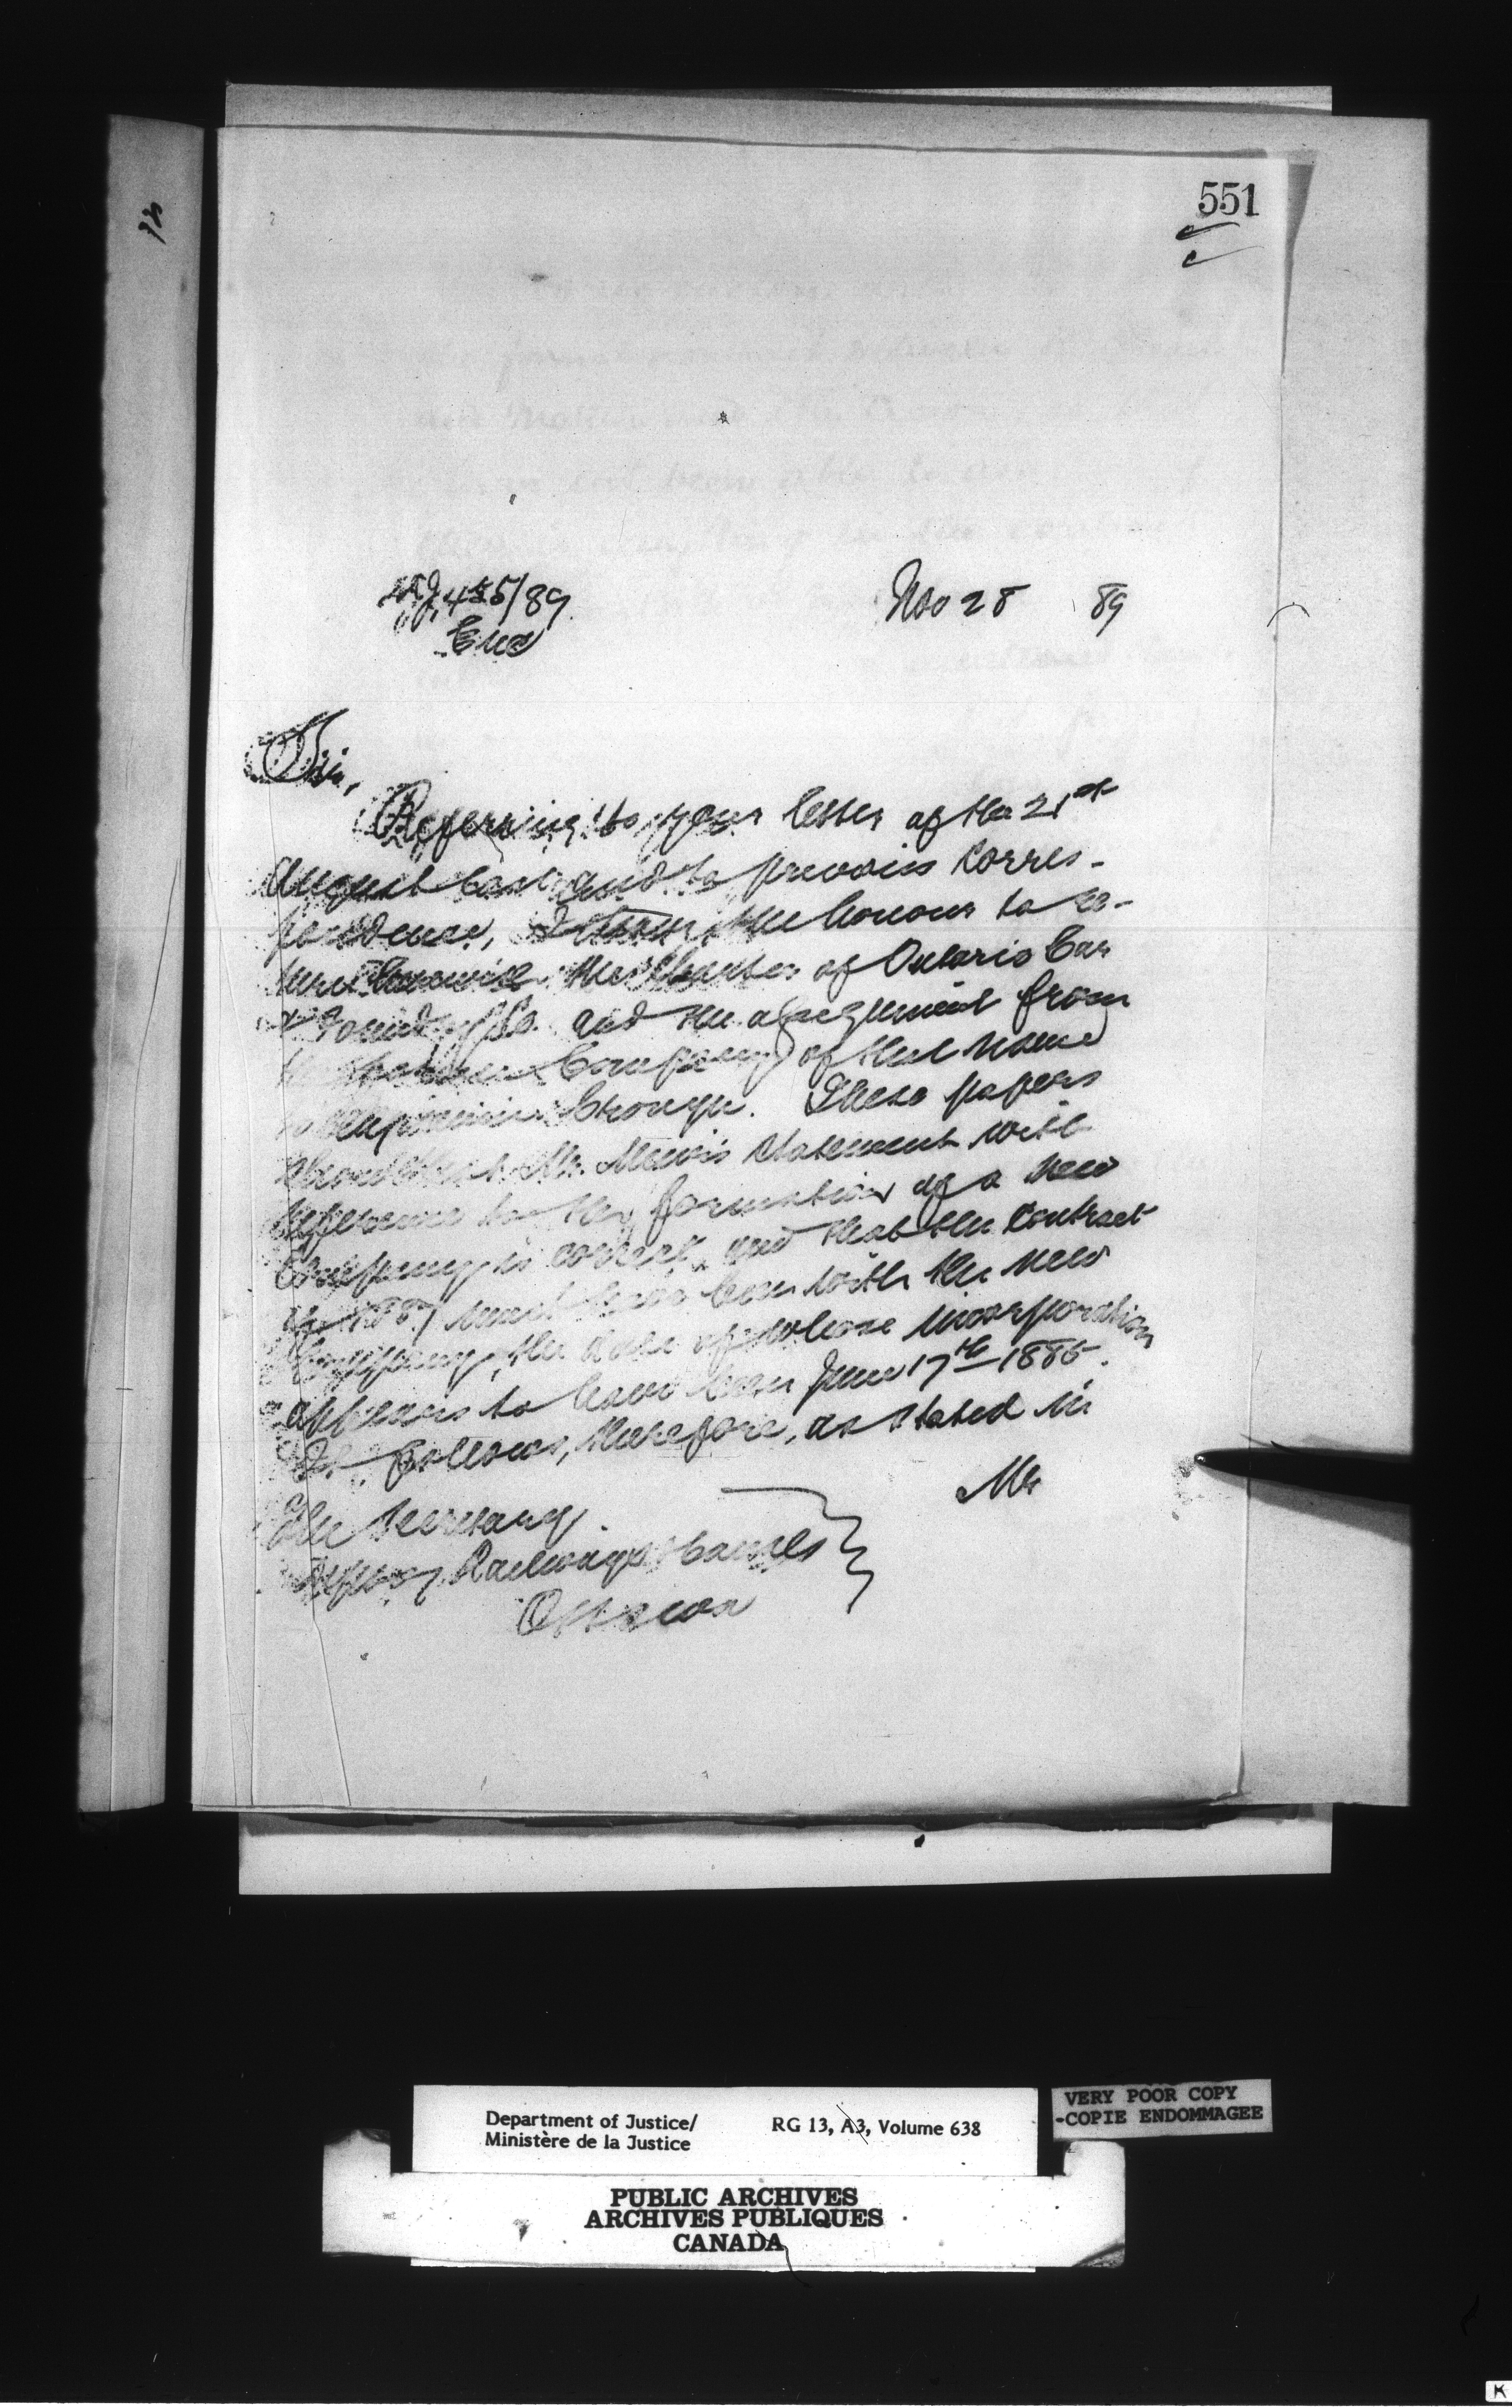 551
455/89
Enc
Nov 28 89
Sir,
Referring to your letter of the 21st
August last and to previous Corres-
pondence, I have the honour to re-
turn herewith the Charter of Ontario Car
& Foundry Co. and the assignment from
the Company of that name
to George. These papers
show that Mr. statement with
reference to the formation of a new
Company is correct, and that the Contract
must have been with the new
Company, the date of whose incorporation
appears to have been June 17th 1885.
It follows, therefore, as stated in
Mr
The Secretary
Dept of Railways & Canals
Ottawa
Department of Justice/
Ministère de la Justice
RG 13, A3, Volume 638
VERY POOR COPY
-COPIE ENDOMMAGEE
PUBLIC ARCHIVES
ARCHIVES PUBLIQUES
CANADA
K